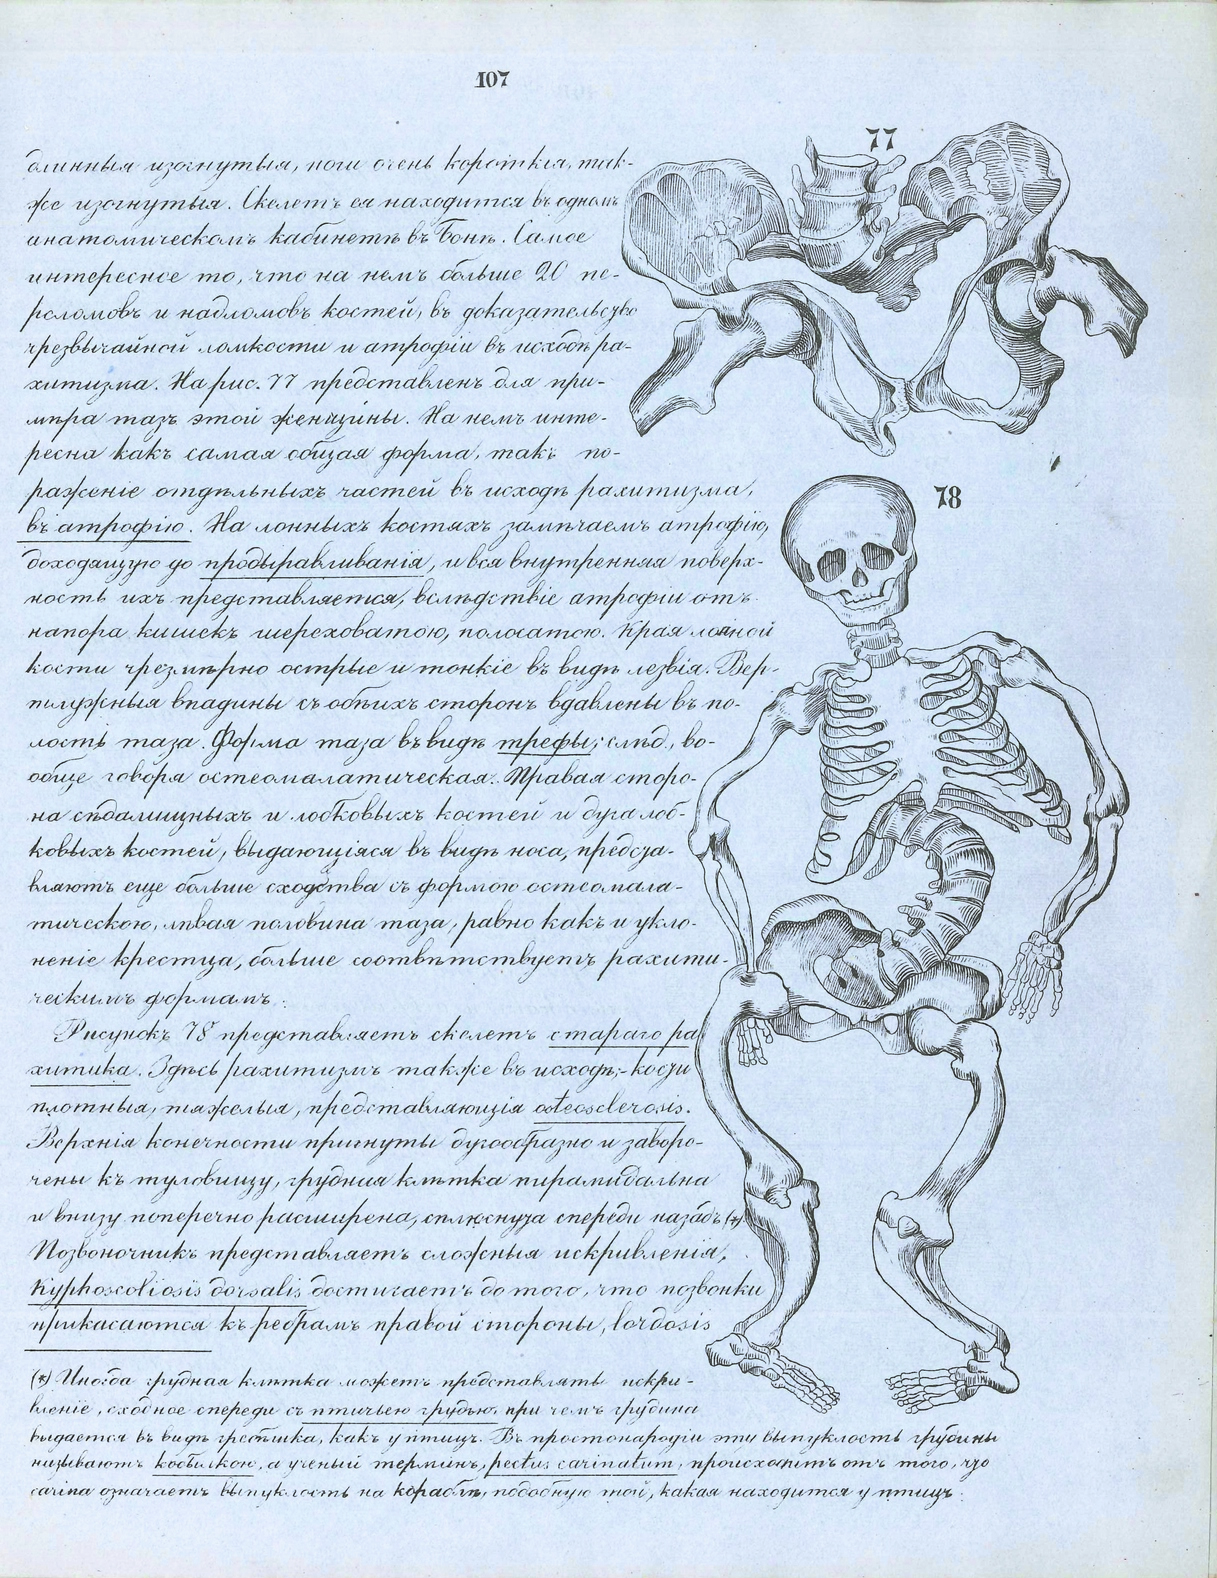 107
77
длинныя изогнутыя, ноги очень короткія, так-
же изогнутыя. Скелетъ ея находится въ одномъ
анатомическомъ кабинетѣ въ Бонѣ. Самое
интересное то, что на немъ больше 20 пе-
реломовъ и надломовъ костей, въ доказательство
чрезвычайной ломкости и атрофіи въ исходѣ ра-
хитизма. На рис. 77 представленъ для при-
мѣра тазъ этой женщины. На немъ инте-
ресна какъ самая общая форма, такъ по-
раженіе отдѣльныхъ частей въ исходѣ рахитизма,
78
въ атрофію. На лонныхъ костяхъ замѣчаемъ атрофію,
доходящую до продыравливанія, и вся внутренняя поверх-
ность ихъ представляется, вслѣдствіе атрофіи отъ
напора кишекъ шереховатою, полосатою. Края лонной
кости чрезмѣрно острые и тонкіе въ видѣ лезвія. Вер-
тлужныя впадины съ обѣихъ сторонъ вдавлены въ по-
лость таза. Форма таза въ видѣ трефы; слѣд., во-
обще говоря остеомалатическая. Правая сторо-
на сѣдалищныхъ и лобковыхъ костей и дуга лоб-
ковыхъ костей, выдающіяся въ видѣ носа, предста-
вляютъ еще больше сходства съ формою остеомала-
тическою, лѣвая половина таза, равно какъ и укло-
неніе крестца, больше соотвѣтствуетъ рахити-
ческимъ формамъ.
Рисунокъ 78 представляетъ скелетъ стараго ра
хитика. Здѣсь рахитизмъ также въ исходѣ;- кости
плотныя, тяжелыя, представляющія osteosclerosis.
Верхнія конечности пригнуты дугообразно и заворо-
чены къ туловищу, грудная клѣтка пирамидальна
и внизу поперечно расширена, сплюснута спереди назадъ (*).
Позвоночникъ представляетъ сложныя искривленія,
Kyphoscoliosis dorsalis достигаетъ до того, что позвонки
прикасаются къ ребрамъ правой стороны, lordosis
(*) Иногда грудная клѣтка можетъ представлять искри-
вленіе, сходное спереди съ птичьею грудью, при чемъ грудина
выдается въ видѣ гребешка, какъ у птицъ. Въ простонародіи эту выпуклость грудины
называютъ кобылкою, а ученый терминъ, pectus carinatum, происходитъ отъ того, что
carina означаетъ выпуклость на кораблѣ, подобную той, какая находится у птицъ.